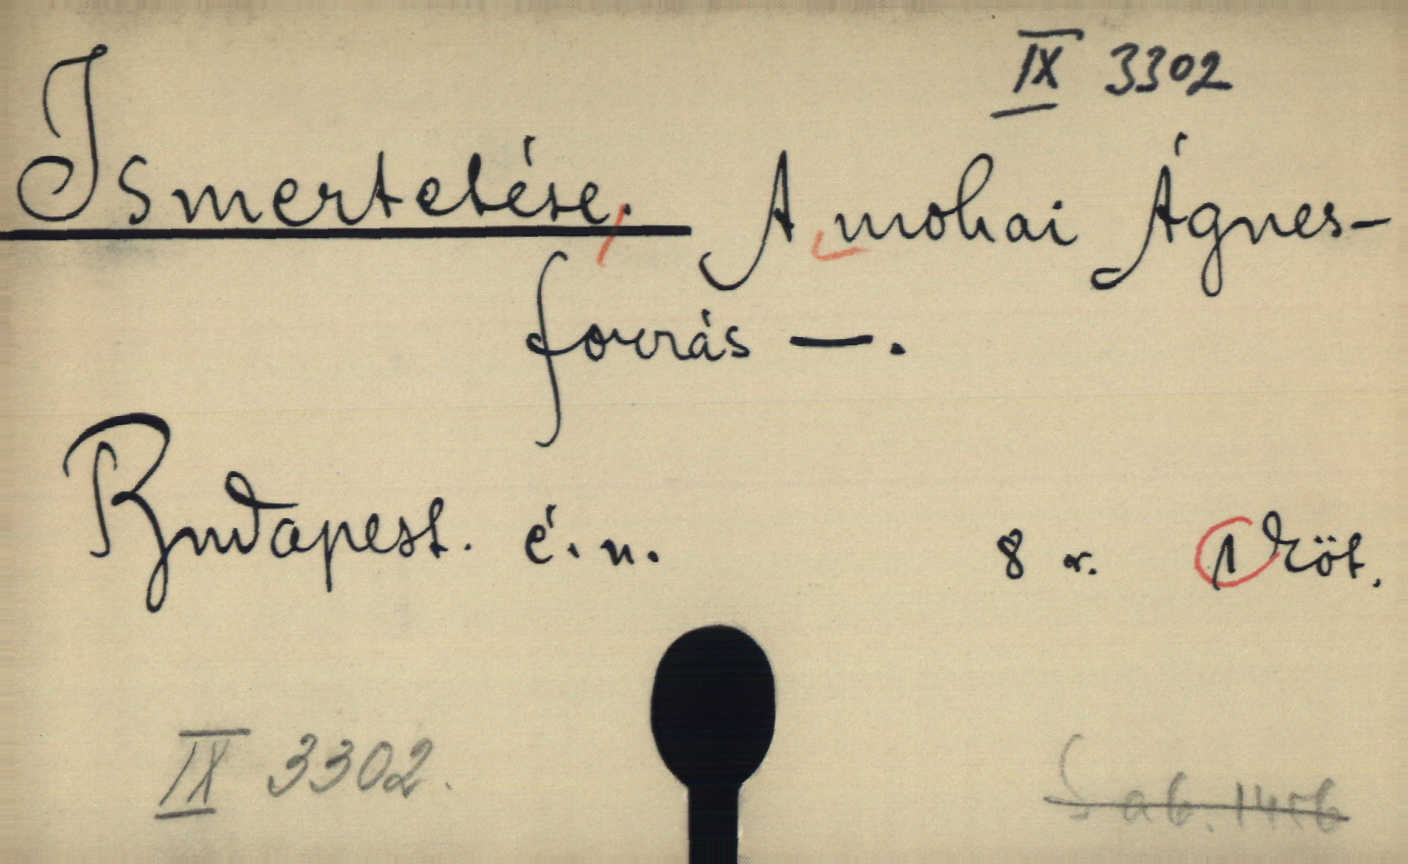 IX 3302
Ismertetése. A mohai Ágnes-
forrás —.
Budapest. é. n. 8 r. 1 köt.
IX 3302.